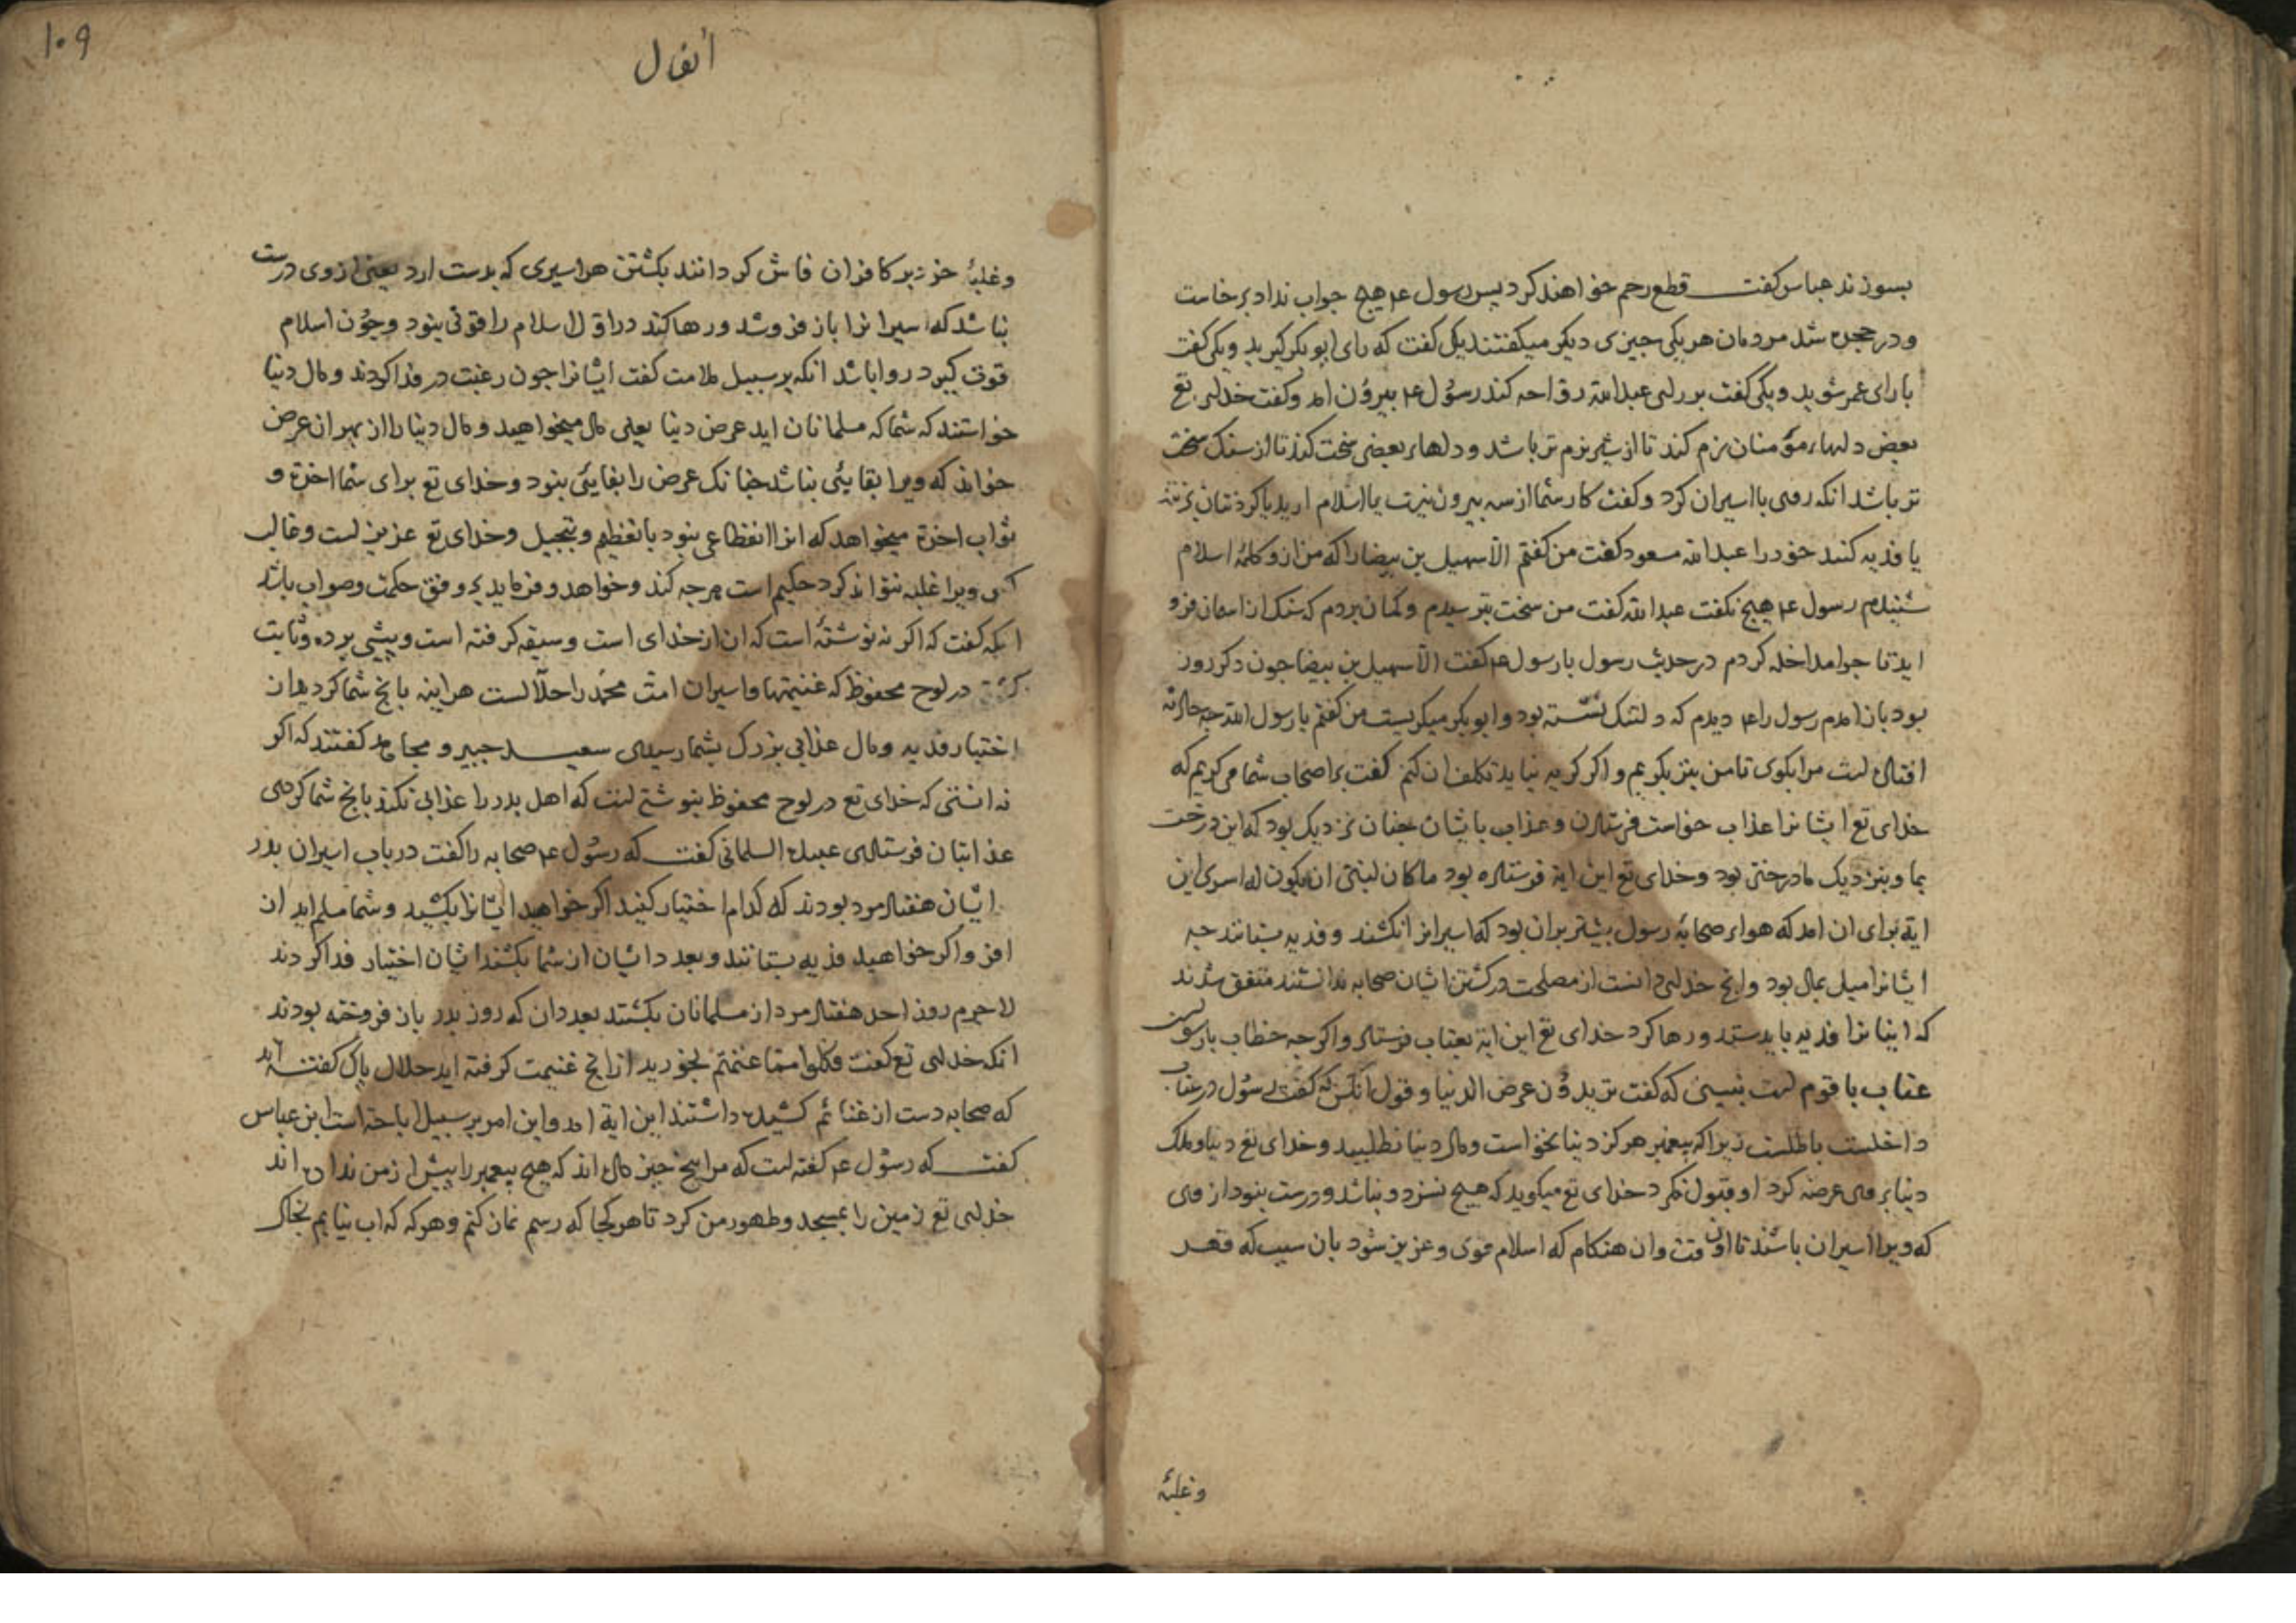 بسوزند عباس کفت قطع رحم خواهند کرد پس رسول ع۴ هیچ جواب نداد برخاست
و در حجره شد مردمان هریکی چیزی دیکر میکفتند یکی کفت که رای ابو بکر کیرید و یکی کفت
با رای عمر شوید و یکی کفت بررای عبدالله رواحه کند رسول ع۴ بیرون امد و کفت خدای تع
بعض دلهاء مؤمنان نرم کند تا از شیر نرم تر باشد و دلهاء بعضی سخت کند تا از سنک سخت
تر باشد انکه روی با اسیران کرد و کفت کار شما از سه بیرون نیست یا اسلام ارید یا کردنتان بزنند
یا فدیه کنند خود را عبدالله مسعود کفت من کفتم الا سهیل بن بیضا را که من ازو کلمهٔ اسلام
شنیدم رسول ع۴ هیچ نکفت عبدالله کفت من سخت بترسیدم و کمان بردم که سنک از اسمان فرو
اید تا چرا مداخله کردم در حدیث رسول یا رسول ع۴ کفت الا سهیل بن بیضا چون دکر روز
بود بان امدم رسول را ع۴ دیدم که دلتنک نشسته بود و ابو بکر میکریست من کفتم یا رسول الله چه حالته
افتاده است مرا بکوی تا من نیز بکریم و اکر کریه نیاید تکلف ان کنم کفت بر اصحاب شما می کریم که
خدای تع ایشانرا عذاب خواست فرستادن و عذاب بایشان چنان نزدیک بود که این درخت
بما و بنزدیک ما درختی بود و خدای تع این ایة فرستاده بود ما کان لنبی ان یکون له اسری این
ایة برای ان امد که هواء صحابهٔ رسول بیشتر بران بود که اسیرانرا نکشند و فدیه بستانند چه
ایشانرا میل بمال بود و انچ خدای دانست از مصلحت در کشتن ایشان صحابه ندانستند متفق شدند
که اینانرا فدیه باید ستد و رها کرد خدای تع این ایة بعتاب فرستاد و اکرچه خطاب با رسول است
عتاب با قوم است نبینی که کفت تریدون عرض الدنیا و قول انکس که کفت رسول در عتاب
داخلست باطلست زیرا که پیغمبر هرکز دنیا نخواست و مال دنیا نطلبید و خدای تع دنیا و ملک
دنیا بر وی عرضه کرد او قبول نکرد خدای تع میکوید که هیچ نسزد و نباشد و درست نبود از وی
که ویرا اسیران باشند تا اون وقت و ان هنکام که اسلام قوی و عزیز شود بان سبب که قهر
وغلبهٔ
۱۰۹
انفال
و غلبهٔ خود بر کافران فاش کردانند بکشتن هر اسیری که بدست ارد یعنی از وی درست
نباشد که اسیرانرا باز فروشد و رها کند در اول اسلام را قوتی نبود و چون اسلام
قوت کیرد روا باشد انکه بر سبیل ملامت کفت ایشانرا چون رغبت در فدا کردند و مال دنیا
خواستند که شما که مسلمانان اید عرض دنیا یعنی مال میخواهید و مال دنیا را از بهر ان عرض
خواند که ویرا بقایئی نباشد چنانک عرض را بقایئی نبود و خدای تع برای شما اخرة و
ثواب اخرة میخواهد که انرا انقطاعی نبود با تعظیم و تبجیل و خدای تع عزیز است و غالب
کس ویرا غلبه نتواند کرد حکیم است هرچه کند و خواهد و فرماید بر وفق حکمت و صواب باشد
انکه کفت که اکر نه نوشتهٔ است که ان از خدای است و سبقه کرفته است و پیشی برده و ثابت
کشته در لوح محفوظ که غنیمتها و اسیران امت محمّد را حلالست هراینه بانچ شما کردید ان
اختیار فدیه و مال عذابی بزرک بشما رسیدی سعید جبیر و مجاهد کفتند که اکر
نه انستی که خدای تع در لوح محفوظ بنوشتست که اهل بدر را عذابی نکند بانچ شما کردی
عذابتان فرستادی عبیدة السلمانی کفت که رسول ع۴ صحابه را کفت در باب اسیران بدر
ایشان هفتاد مرد بودند که کدام اختیار کنید اکر خواهید ایشانرا بکشید و شما مسلم اید از ان
افز و اکر خواهید فدیه بستانند و بعددایشان از شما بکشند ایشان اختیار فدا کردند
لاجرم روز احد هفتاد مرد از مسلمانان بکشتند بعددان که روز بدر بان فروخته بودند
انکه خدای تع کفت فکلوا مما غنمتم بخورید ازانچ غنیمت کرفته اید حلال پاک کفتند
که صحابه دست از غنائم کشیده داشتند این ایة امد و این امر بر سبیل اباحتست ابن عباس
کفت که رسول ع۴ کفته است که مرا پنج چیز داده اند که هیچ پیغمبر را پیش از من نداده اند
خدای تع زمین را مسجد و طهور من کرد تا هر کجا که رسم نماز کنم و هرکه که اب نیابم بخاک